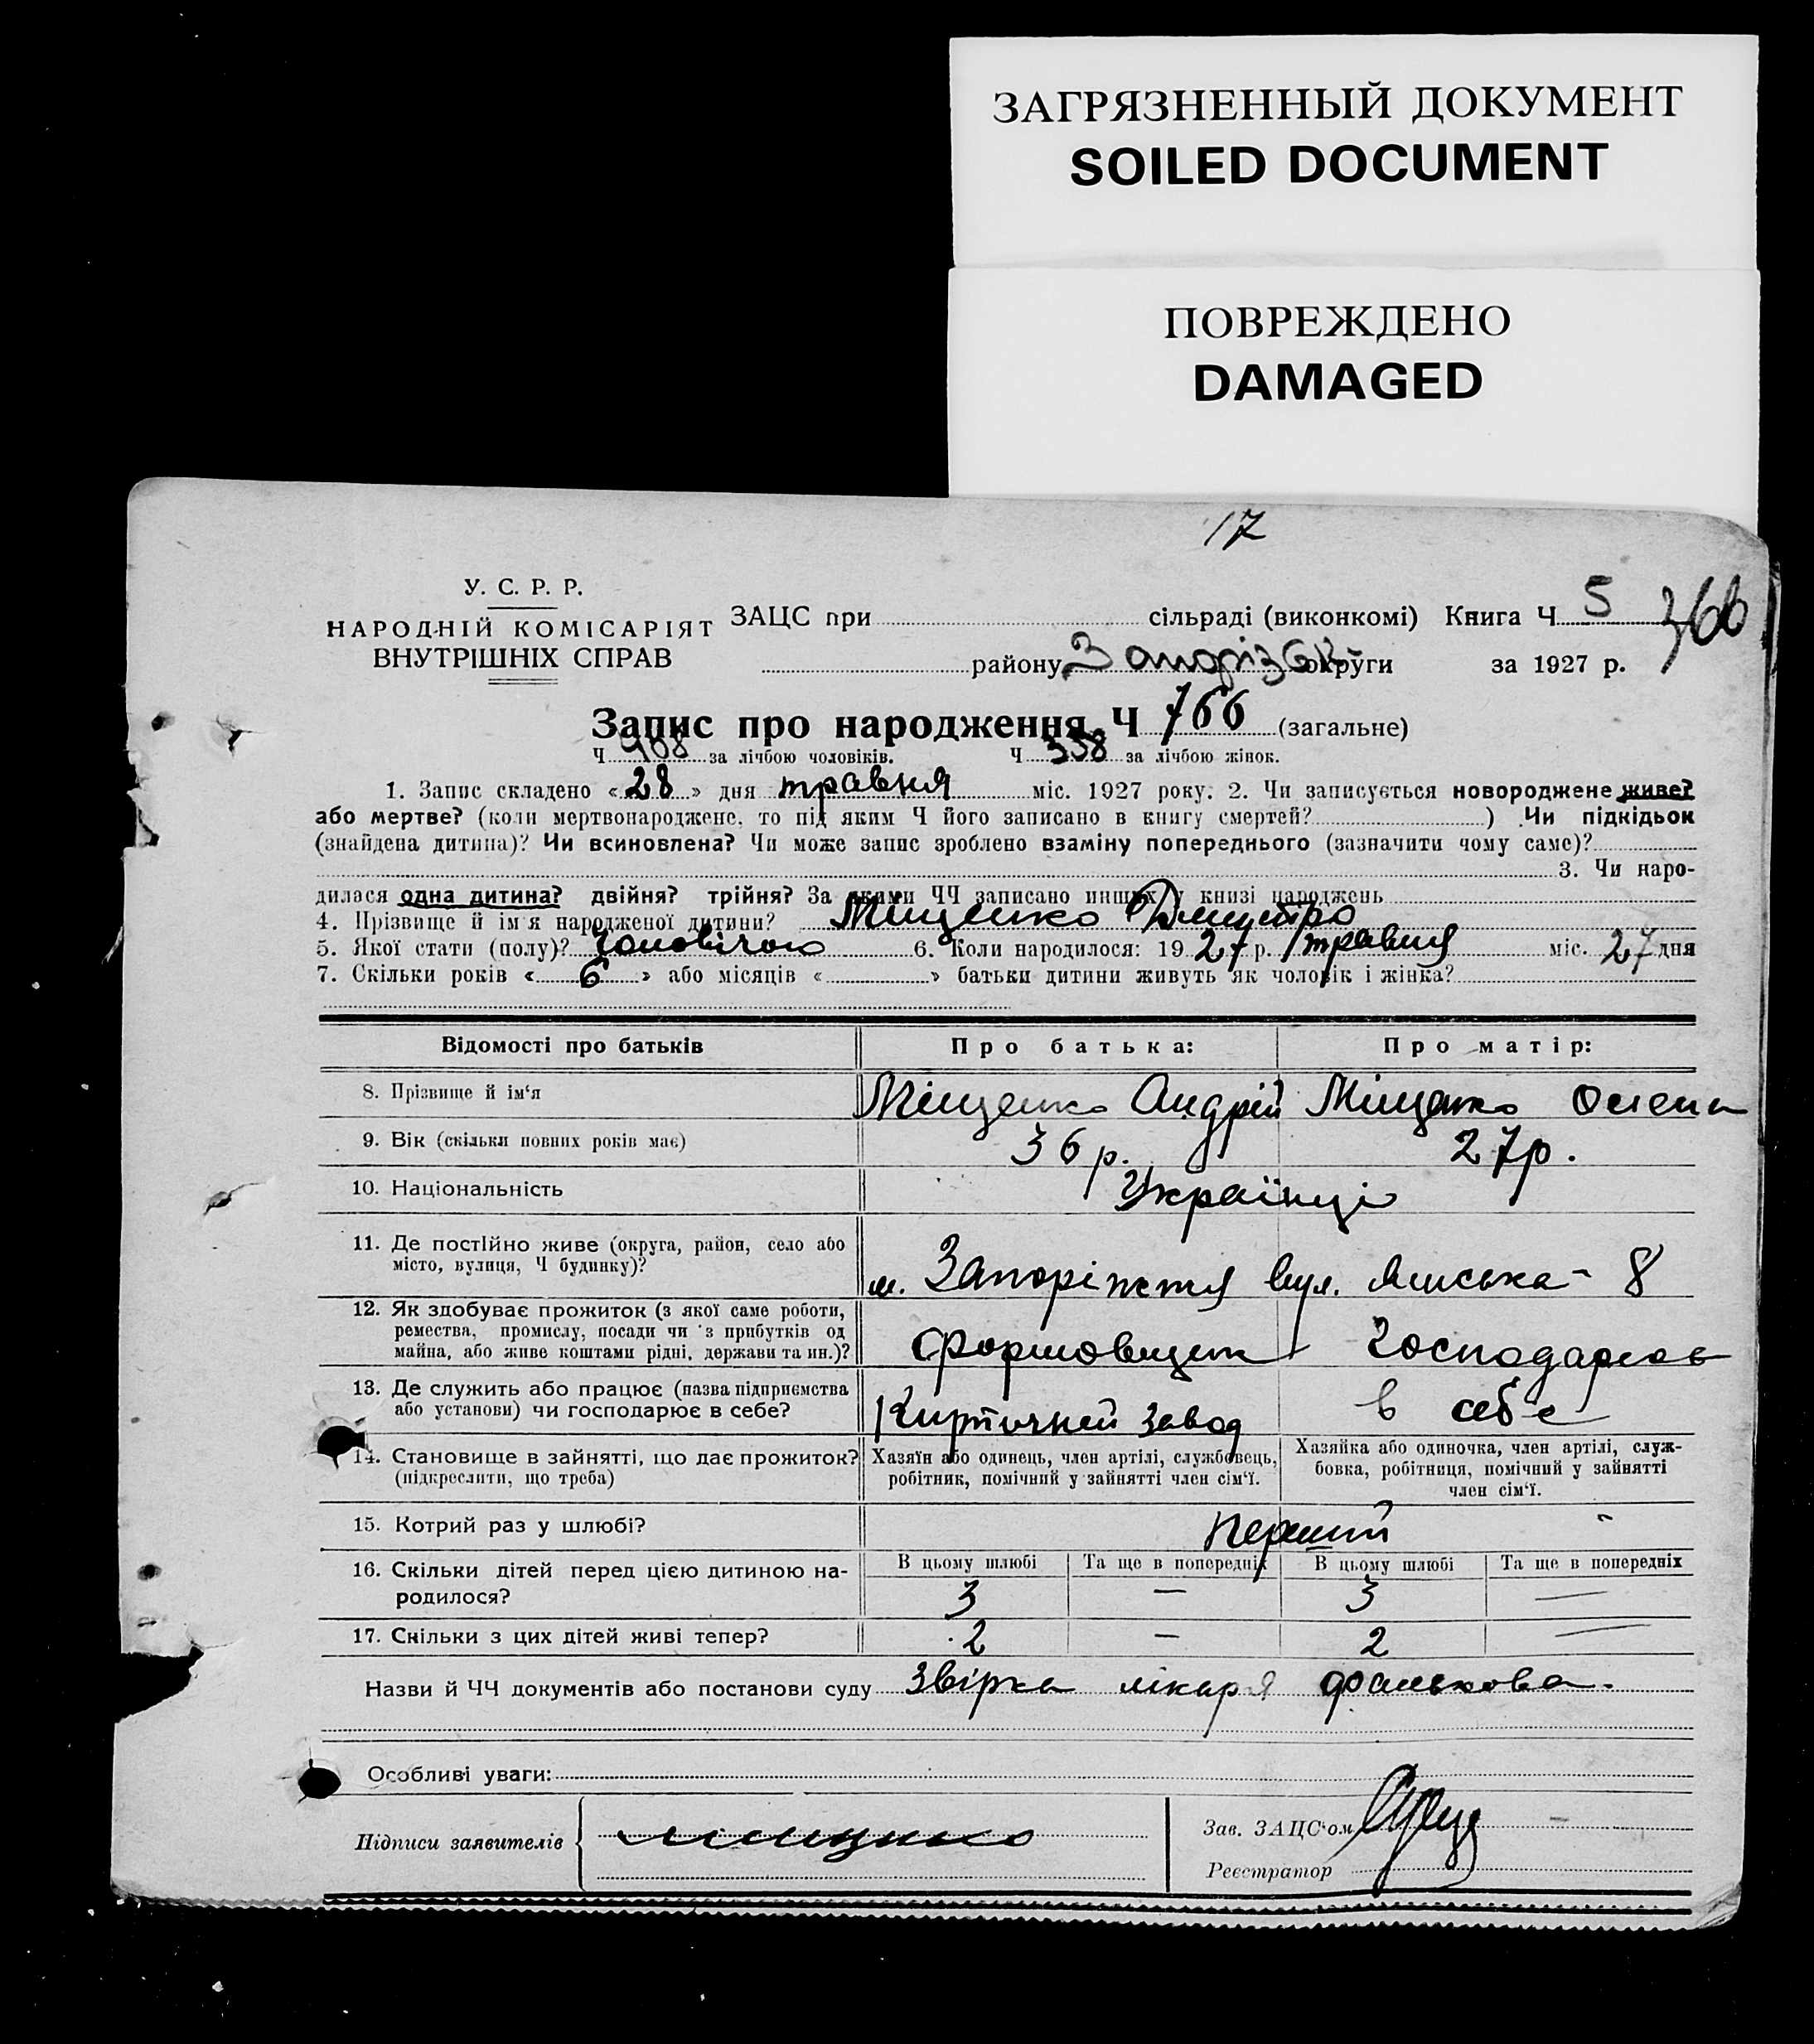 ЗАГРЯЗНЕННЫЙ ДОКУМЕНТ
SOILED DOCUMENT
ПОВРЕЖДЕНО
DAMAGED
17
У. С. Р. Р.
НАРОДНІЙ КОМІСАРІЯТ
ВНУТРІШНІХ СПРАВ
ЗАЦС при сільраді (виконкомі) Книга Ч 5 366
району Запорізьк округи за 1927 р.
Запис про народження Ч 766 (загальне)
Ч 408 за лічбою чоловіків. Ч 358 за лічбою жінок.
1. Запис складено « 28 » дня травня міс. 1927 року. 2. Чи записується новороджене живе?
або мертве? (коли мертвонароджене, то під яким Ч його записано в книгу смертей? ) Чи підкідьок
(знайдена дитина)? Чи всиновлена? Чи може запис зроблено взаміну попереднього (зазначити чому саме)?
3. Чи наро-
дилася одна дитина? двійня? трійня? За якими ЧЧ записано инших у книзі народжень
4. Прізвище й ім'я народженої дитини? Міщенко Дмитро
5. Якої стати (полу)? чоловічою 6. Коли народилося: 1927 р. травня міс. 27 дня
7. Скільки років « 6 » або місяців « » батьки дитини живуть як чоловік і жінка?
Відомості про батьків Про батька: Про матір:
8. Прізвище й ім'я Міщенко Андрій Міщенко Олена
9. Вік (скільки повних років має) 36 р. 27 р.
10. Національність Українці
11. Де постійно живе (округа, район, село або
місто, вулиця, Ч будинку)?
м. Запоріжжя вул. 8
12. Як здобуває прожиток (з якої саме роботи,
ремества, промислу, посади чи з прибутків од
майна, або живе коштами рідні, держави та ин.)?
Формовщик Господарює
13. Де служить або працює (назва підприємства
або установи) чи господарює в себе?
Кирпичний завод в себе
14. Становище в зайнятті, що дає прожиток?
(підкреслити, що треба)
Хазяїн або одинець, член артілі, службовець,
робітник, помічний у зайнятті член сім'ї.
Хазяйка або одиночка, член артілі, служ-
бовка, робітниця, помічний у зайнятті
член сім'ї.
15. Котрий раз у шлюбі? перший "
16. Скільки дітей перед цією дитиною на-
родилося?
В цьому шлюбі Та ще в попередніх В цьому шлюбі Та ще в попередніх
3 — 3 —
17. Скільки з цих дітей живі тепер? 2 — 2 —
Назви й ЧЧ документів або постанови суду звірка лікаря Фалькова.
Особливі уваги:
Підписи заявителів Міщенко
Зав. ЗАЦС'ом
Реєстратор